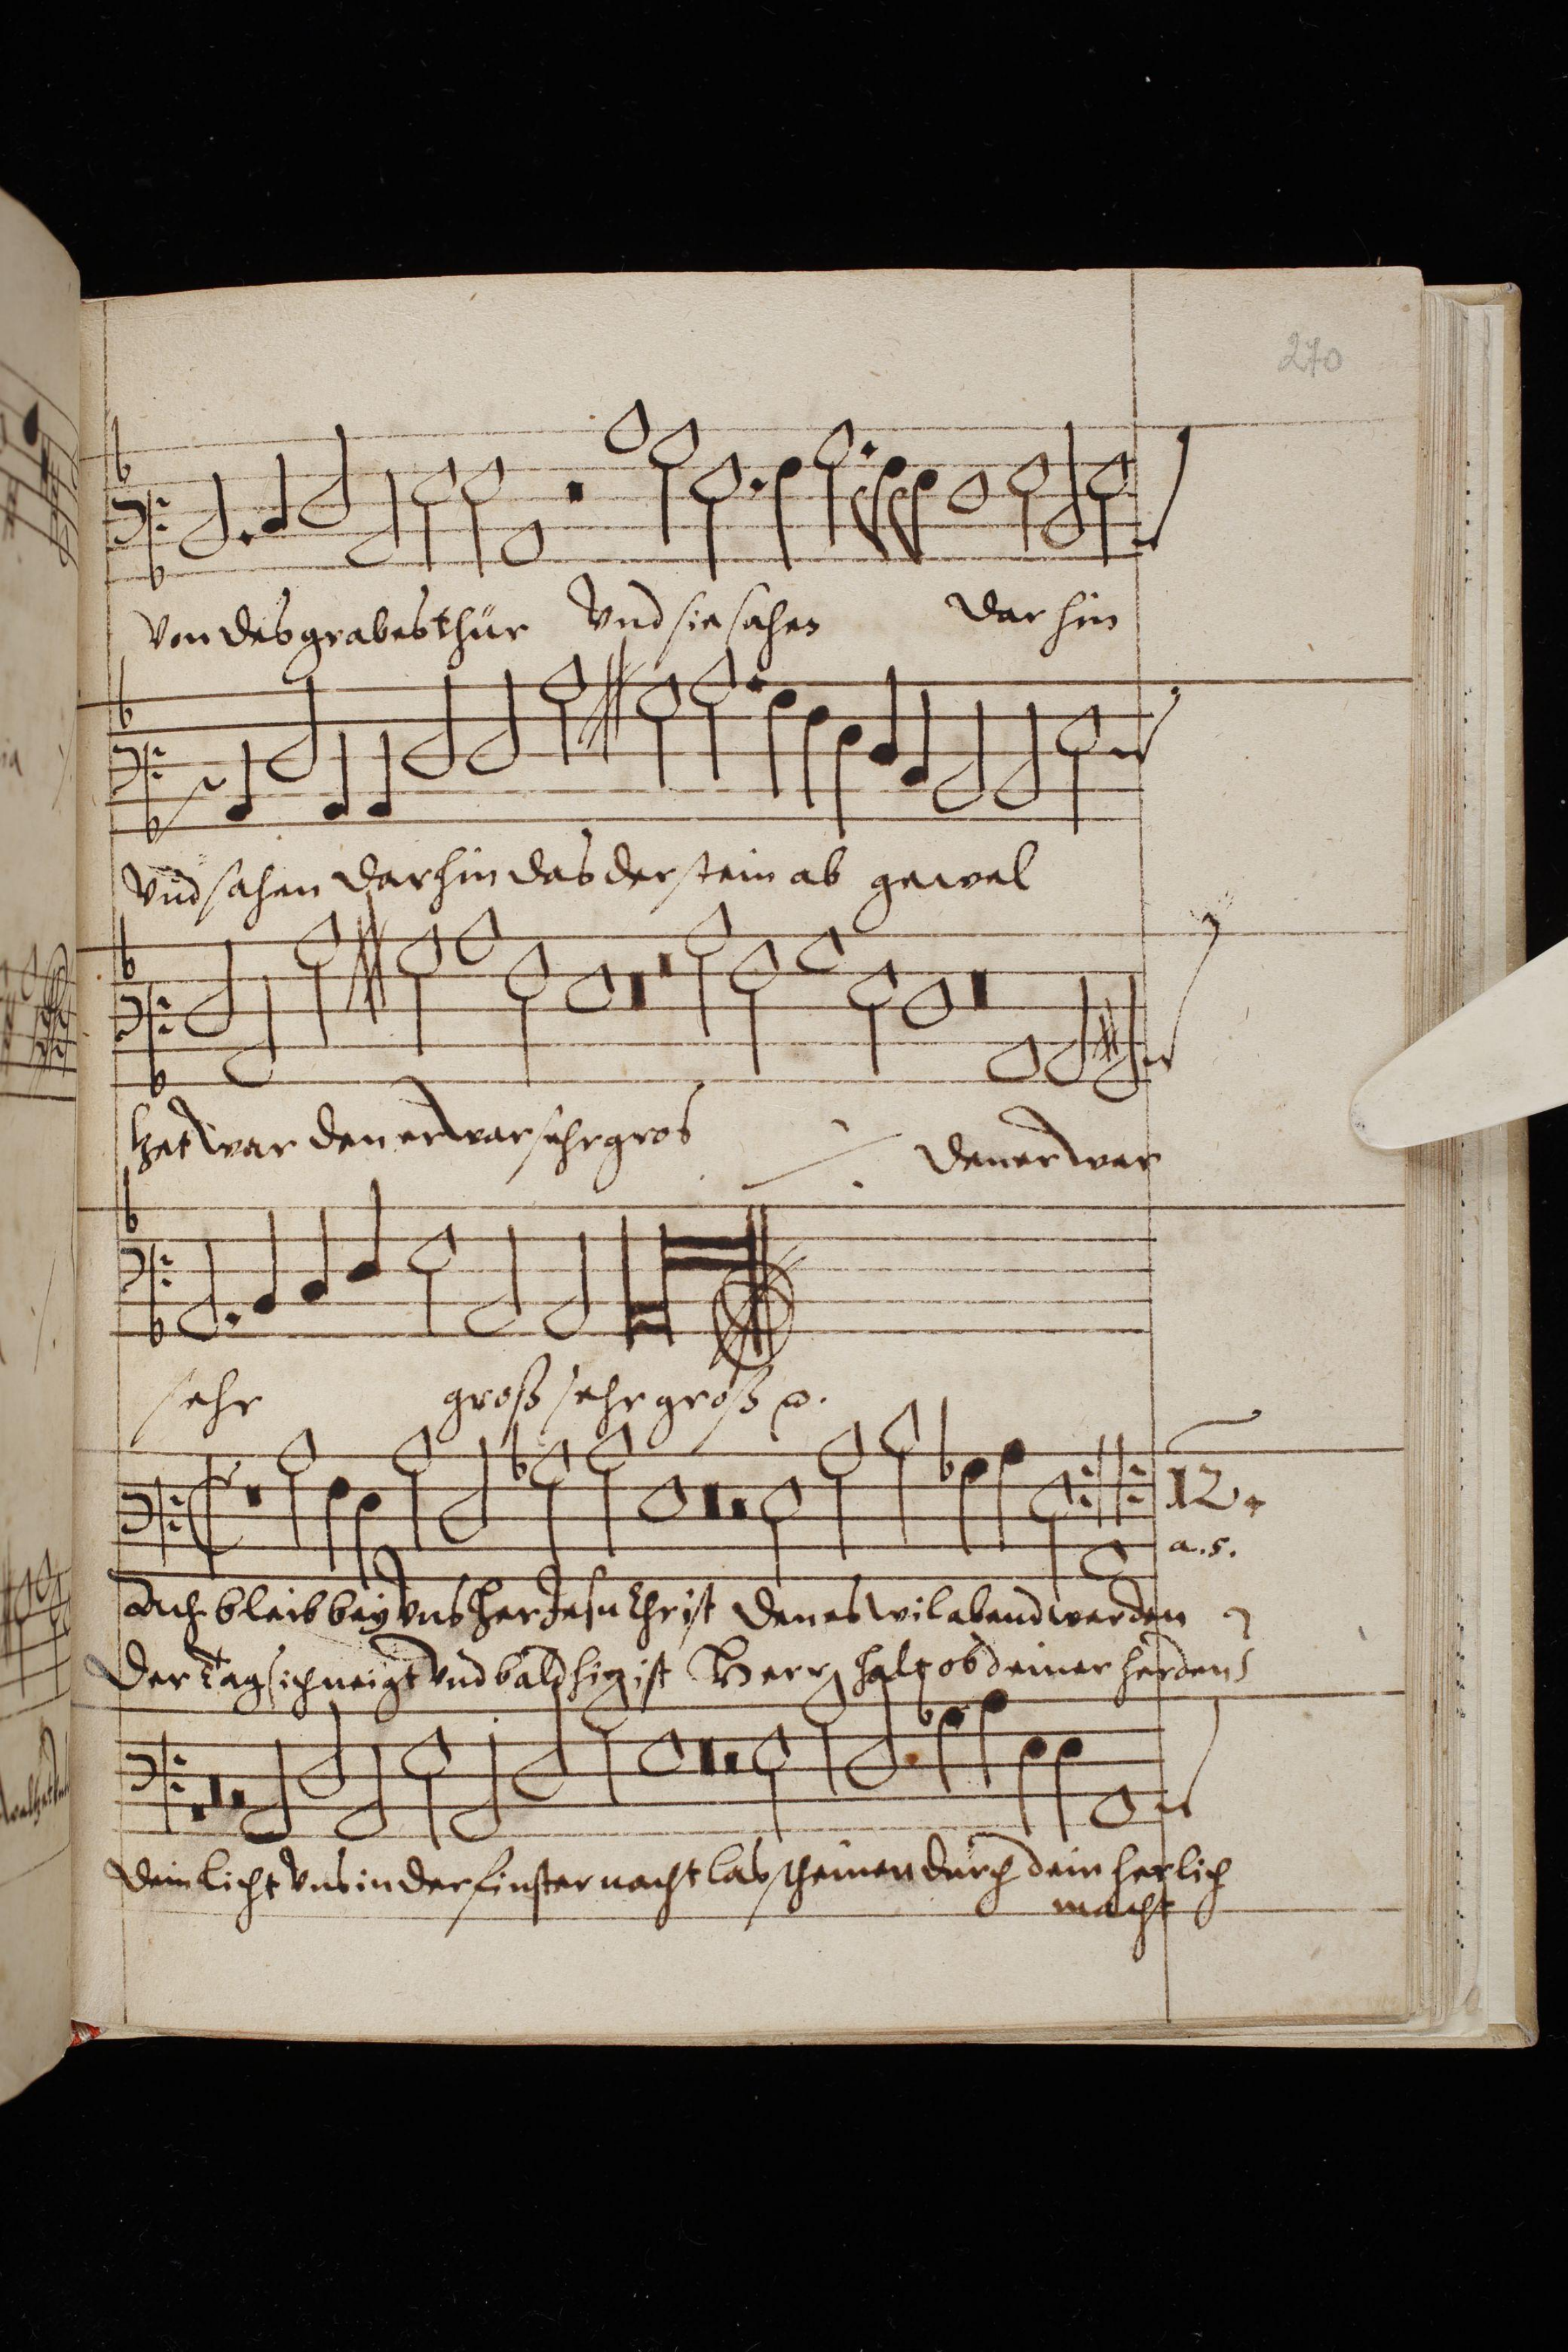 270
Von des grabes thür Vnd sie sahen dar hin
Vnd sahen dar hin das der stein ab gewel
tzet war den er war sehr gros den er war
sehr groß sehr groß
12.
a. 5.
Ach bleib bey Vns Her Jesu Christ den es wil abend werden
Der Tag sich neigt Vnd bald hin ist Herr halt ob deiner herden
Dein Licht Vns in der finster nacht las scheinen durch dein herlich
macht